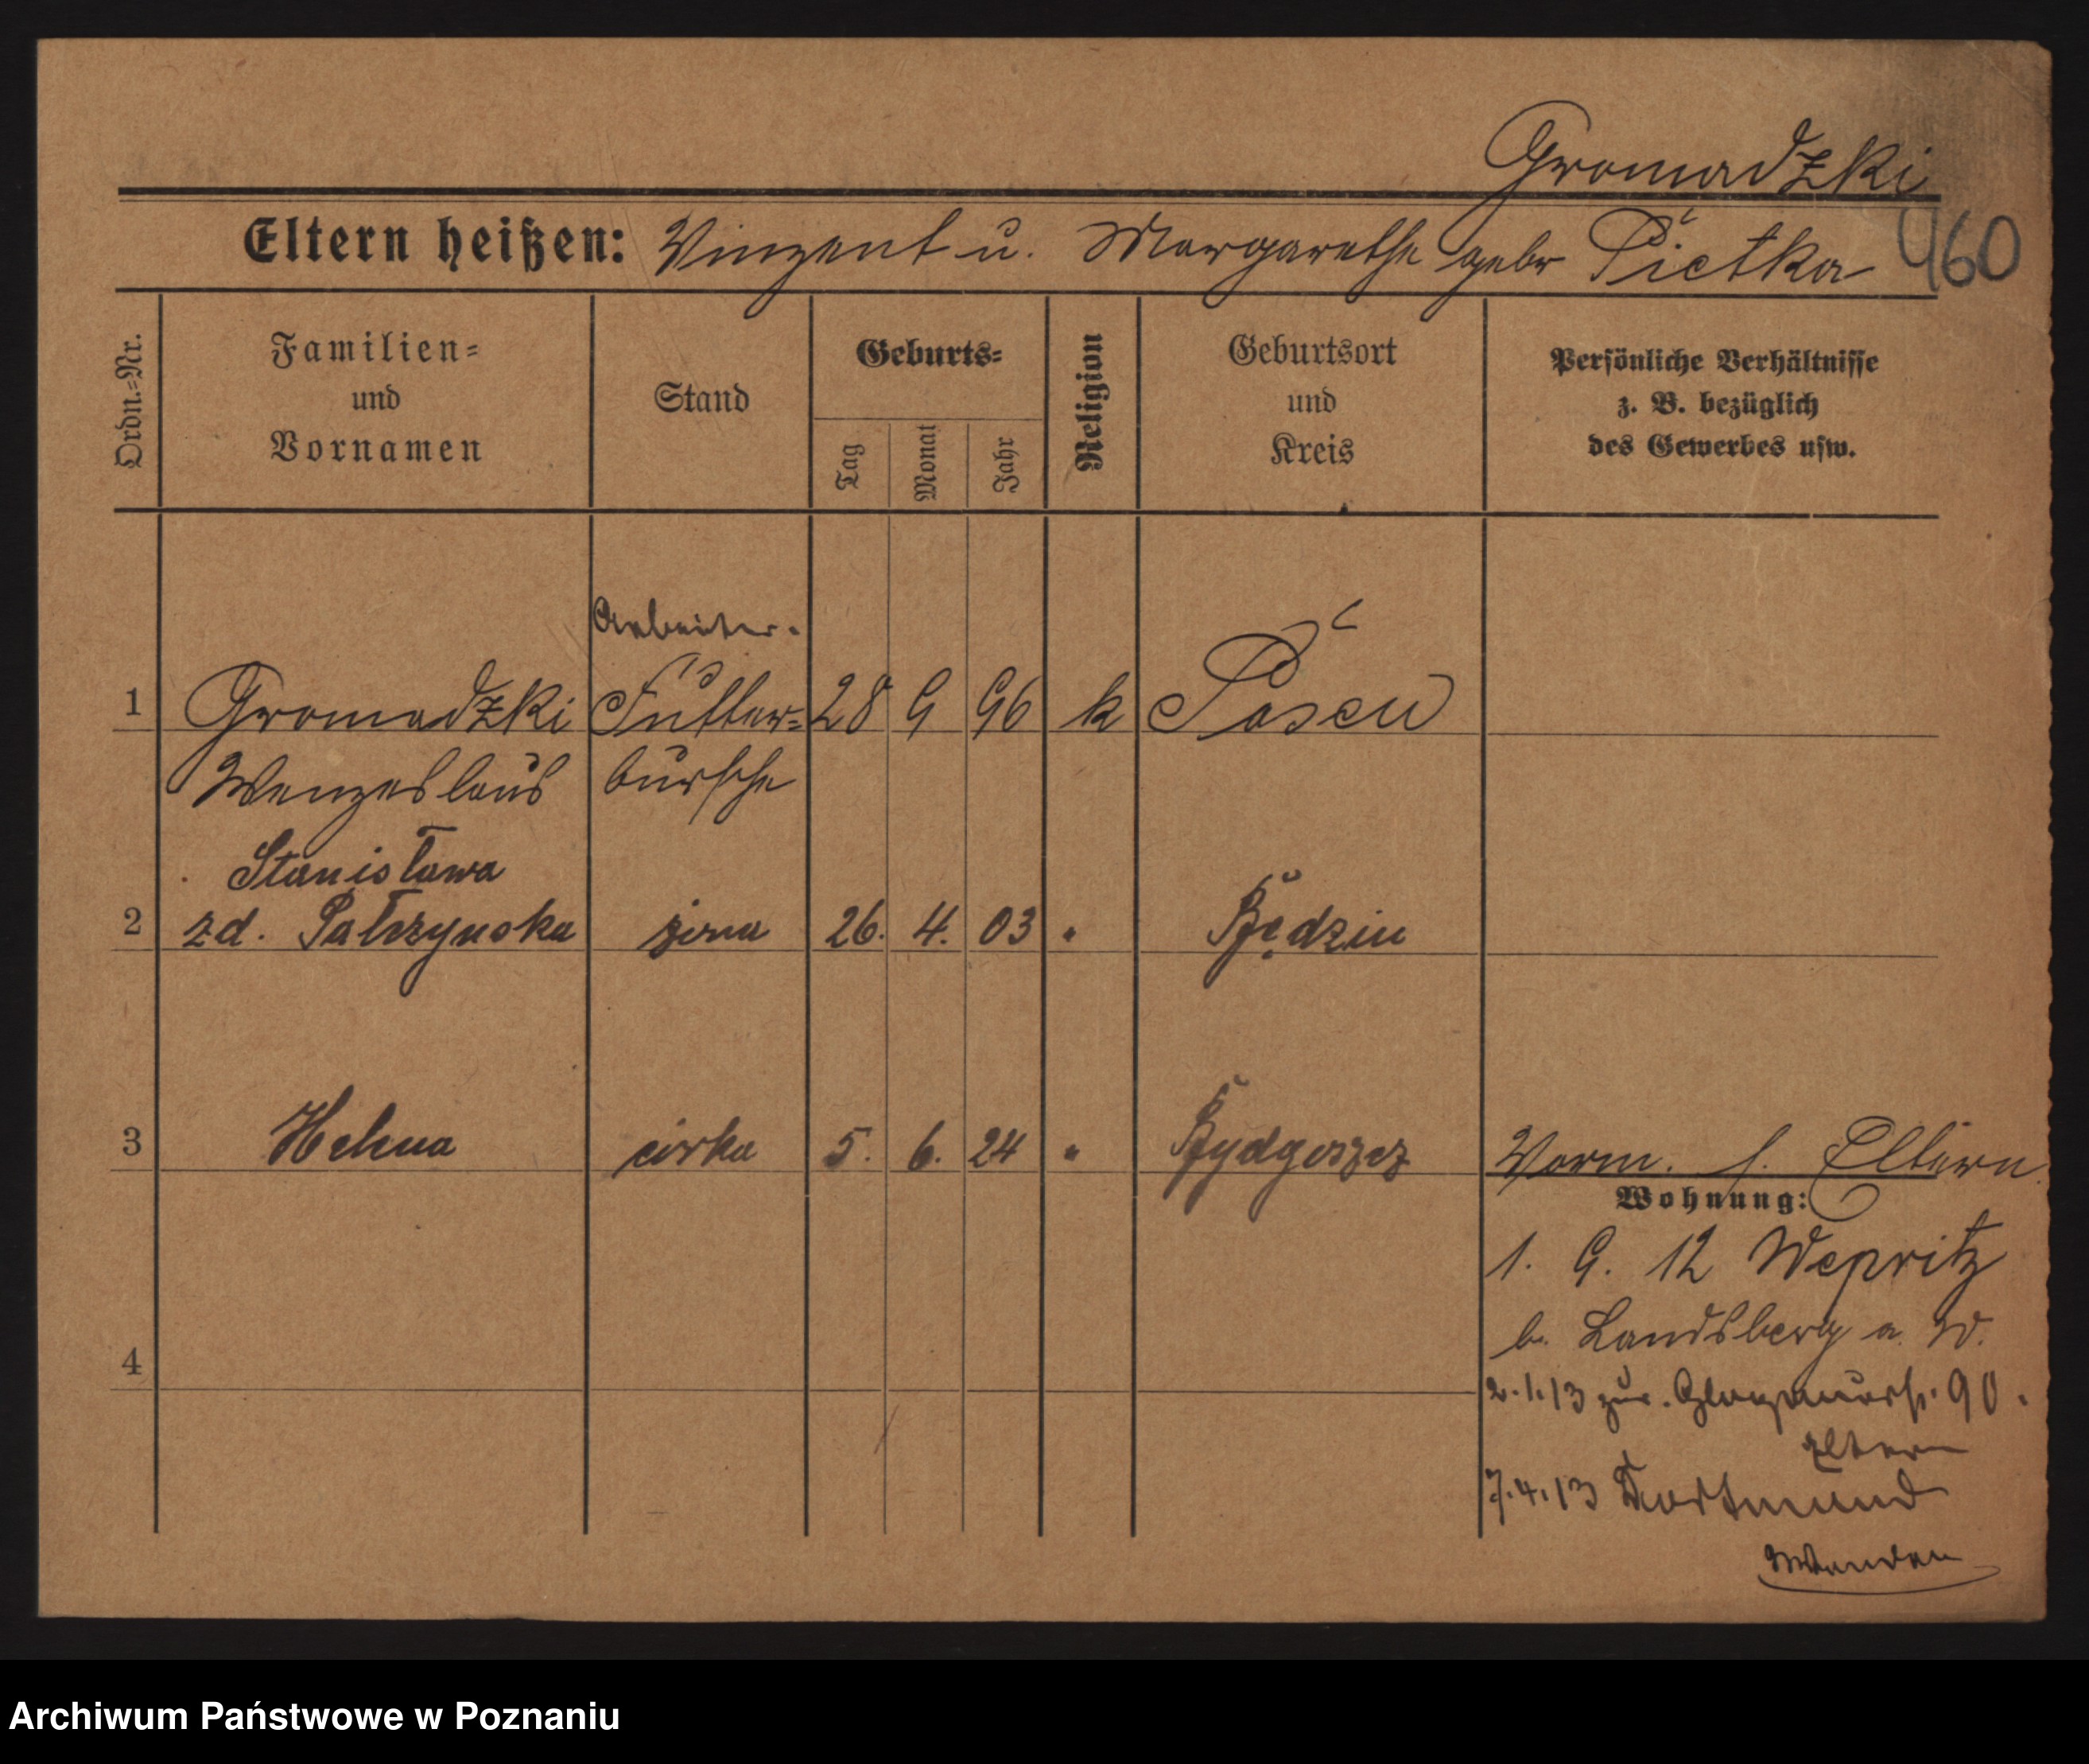 Gromadzki
Eltern heißen: Vinzent u. Margarethe gebr Pietka 960
Ordn.=Nr.
Familien=
und
Vornamen
Stand
Geburts=
Tag
Monat
Jahr
Religion
Geburtsort
und
Kreis
Persönliche Verhältnisse
z. B. bezüglich
des Gewerbes usw.
Arbeiter.
1 Gromadzki Futter= 28 9 96 k Posen
Wenzeslaus bursche
Stanisława
2 zd. żona 26. 4. 03 " Będzin
3 Helena córka 5. 6. 24 " Bydgoszcz Vorm. s. Eltern
Wohnung:
1. 9. 12 Wepritz
b. Landsberg a. W.
4
2.1.13 zur. 90.
Eltern
7.4.13 Dortmund